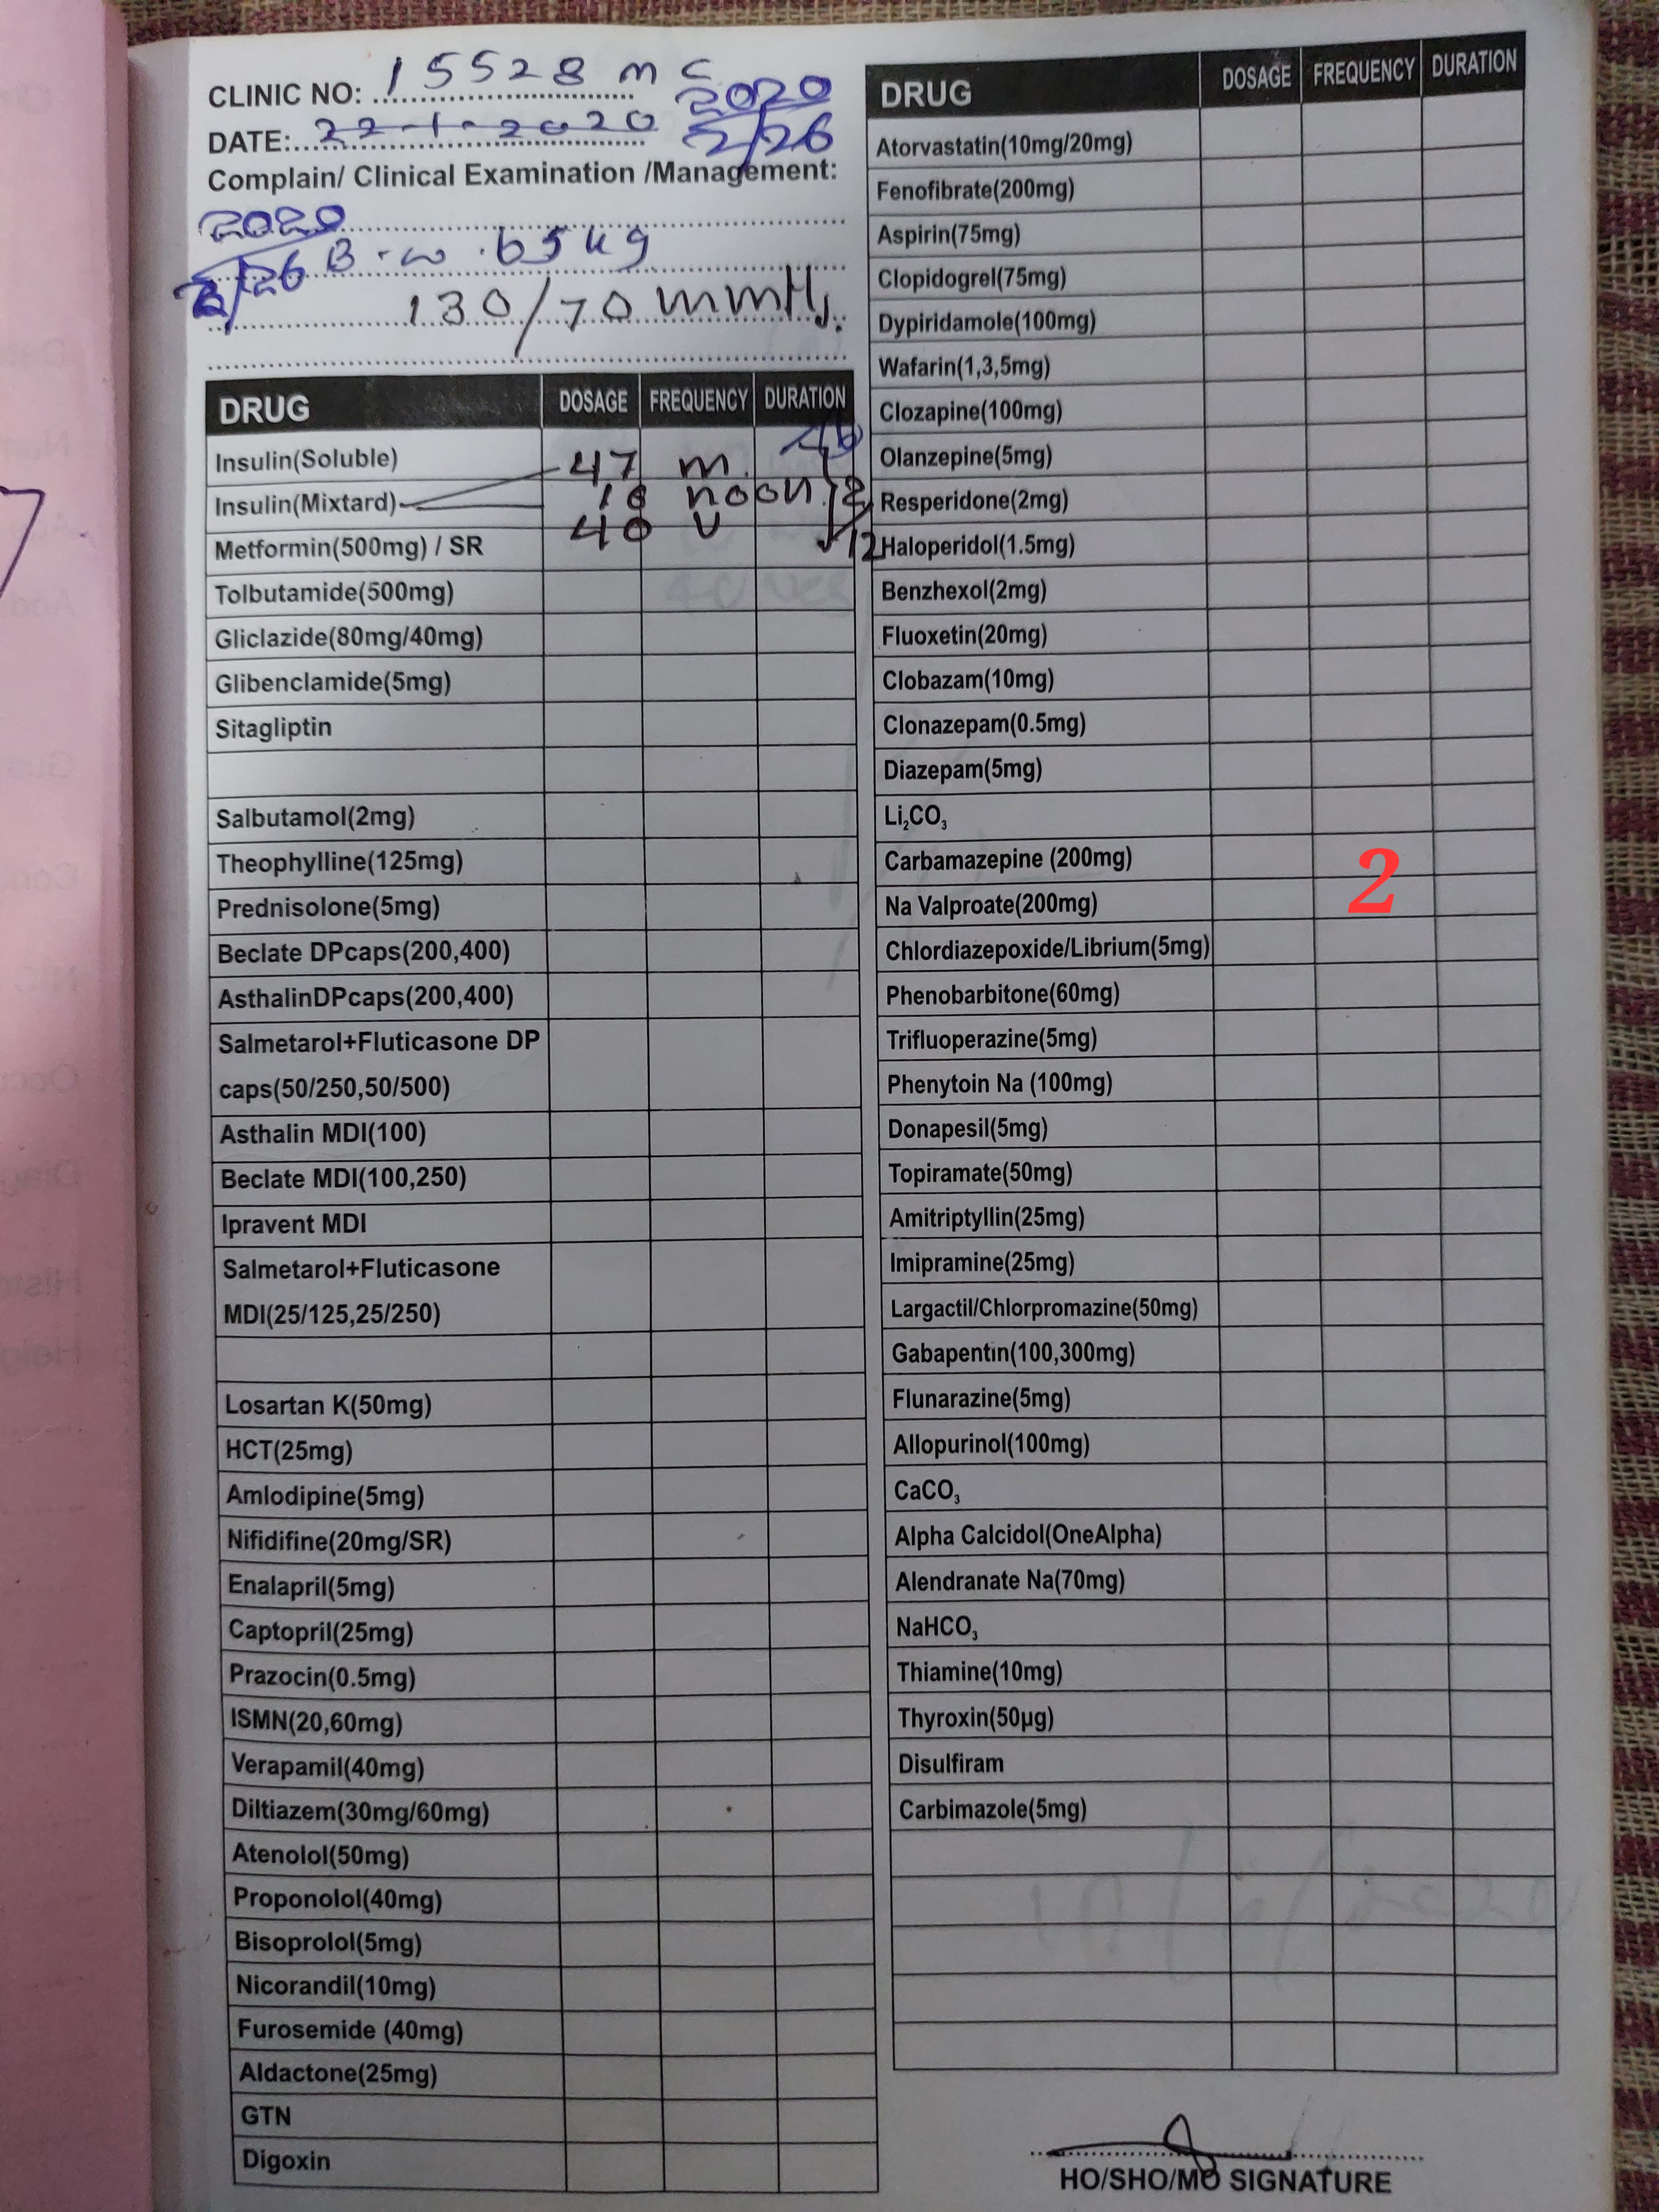 CLINIC NO: 15528 m c
2020
DATE: 22-1-2020 2/26
Complain/ Clinical Examination /Management:
2020
2/26 B.w. 65 kg
130/70 mmHg.
DRUG DOSAGE FREQUENCY DURATION
Insulin(Soluble) 47 m.
Insulin(Mixtard) 18 noon
Metformin(500mg) / SR 40 12
Tolbutamide(500mg)
Gliclazide(80mg/40mg)
Glibenclamide(5mg)
Sitagliptin
Salbutamol(2mg)
Theophylline(125mg)
Prednisolone(5mg)
Beclate DPcaps(200,400)
AsthalinDPcaps(200,400)
Salmetarol+Fluticasone DP
caps(50/250,50/500)
Asthalin MDI(100)
Beclate MDI(100,250)
Ipravent MDI
Salmetarol+Fluticasone
MDI(25/125,25/250)
Losartan K(50mg)
HCT(25mg)
Amlodipine(5mg)
Nifidifine(20mg/SR)
Enalapril(5mg)
Captopril(25mg)
Prazocin(0.5mg)
ISMN(20,60mg)
Verapamil(40mg)
Diltiazem(30mg/60mg)
Atenolol(50mg)
Proponolol(40mg)
Bisoprolol(5mg)
Nicorandil(10mg)
Furosemide (40mg)
Aldactone(25mg)
GTN
Digoxin
DRUG DOSAGE FREQUENCY DURATION
Atorvastatin(10mg/20mg)
Fenofibrate(200mg)
Aspirin(75mg)
Clopidogrel(75mg)
Dypiridamole(100mg)
Wafarin(1,3,5mg)
Clozapine(100mg)
Olanzepine(5mg)
Resperidone(2mg)
Haloperidol(1.5mg)
Benzhexol(2mg)
Fluoxetin(20mg)
Clobazam(10mg)
Clonazepam(0.5mg)
Diazepam(5mg)
Li₂CO₃
Carbamazepine (200mg)
2
Na Valproate(200mg)
Chlordiazepoxide/Librium(5mg)
Phenobarbitone(60mg)
Trifluoperazine(5mg)
Phenytoin Na (100mg)
Donapesil(5mg)
Topiramate(50mg)
Amitriptyllin(25mg)
Imipramine(25mg)
Largactil/Chlorpromazine(50mg)
Gabapentin(100,300mg)
Flunarazine(5mg)
Allopurinol(100mg)
CaCO₃
Alpha Calcidol(OneAlpha)
Alendranate Na(70mg)
NaHCO₃
Thiamine(10mg)
Thyroxin(50µg)
Disulfiram
Carbimazole(5mg)
HO/SHO/MO SIGNATURE